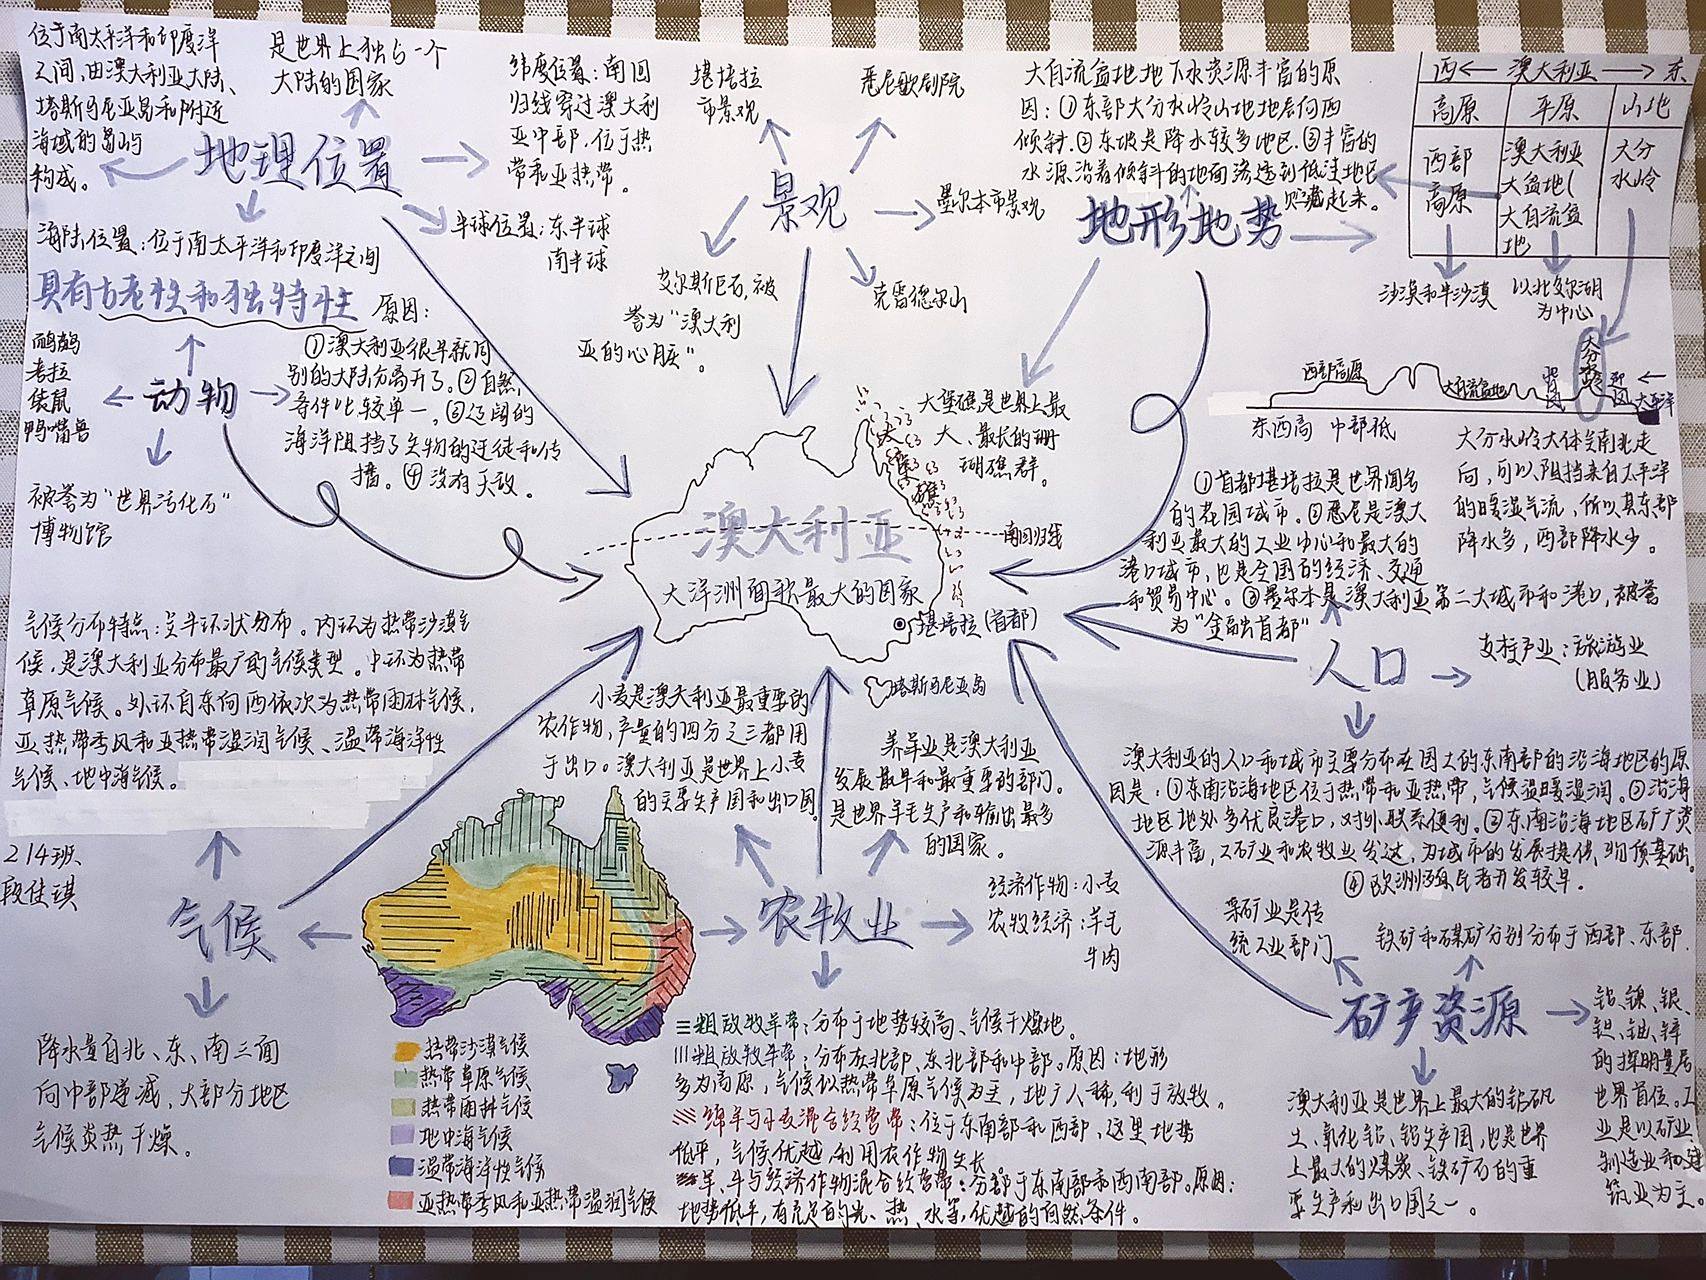 位于南太平洋和印度洋
之间,由澳大利亚大陆、
塔斯马尼亚岛和附近
海域的岛屿
构成。
是世界上独占一个
大陆的国家
地理位置
纬度位置:南回
归线穿过澳大利
亚中部,位于热
带和亚热带。
半球位置:东半球
南半球
海陆位置:位于南太平洋和印度洋之间
堪培拉
市景观
悉尼歌剧院
景观
墨尔本市景观
艾尔斯巨石,被
誉为“澳大利
亚的心脏”。
克雷德尔山
大自流盆地地下水资源丰富的原
因:①东部大分水岭山地地层向西
倾斜.②东坡是降水较多地区.③丰富的
水源沿着倾斜的地面渗透到低洼地区
贮藏起来。
地形地势
西← 澳大利亚 →东
高原 平原 山地
西部
高原
澳大利亚
大盆地(
大自流盆
地
大分
水岭
沙漠和半沙漠
以北艾尔湖
为中心
西部高原
大自流盆地
大分水岭
背风
迎风
太平洋
东西高 中部低
大分水岭大体呈南北走
向,可以阻挡来自太平洋
的暖湿气流,所以其东部
降水多,西部降水少。
具有古老性和独特性
原因:
①澳大利亚很早就同
别的大陆分离开了。②自然
条件比较单一。③辽阔的
海洋阻挡了生物的迁徙和传
播。④没有天敌。
动物
鸸鹋
考拉
袋鼠
鸭嘴兽
被誉为“世界活化石”
博物馆
大堡礁是世界上最
大、最长的珊
瑚礁群。
大
堡
礁
澳大利亚
南回归线
大洋洲面积最大的国家
堪培拉(首都)
塔斯马尼亚岛
①首都堪培拉是世界闻名
的花园城市。②悉尼是澳大
利亚最大的工业中心和最大的
港口城市,也是全国的经济、交通
和贸易中心。③墨尔本是澳大利亚第二大城市和港口,被誉
为“金融首都”
人口
支持产业:旅游业
(服务业)
澳大利亚的人口和城市主要分布在国土的东南部的沿海地区的原
因是:①东南沿海地区位于热带和亚热带,气候温暖湿润。②沿海
地区地处多优良港口,对外联系便利。③东南沿海地区矿产资
源丰富,工矿业和农牧业发达,为城市的发展提供物质基础.
④欧洲殖民者开发较早。
气候分布特点:呈半环状分布。内环为热带沙漠气
候,是澳大利亚分布最广的气候类型。中环为热带
草原气候。外环自东向西依次为热带雨林气候,
亚热带季风和亚热带湿润气候、温带海洋性
气候、地中海气候。
214班
段佳琪
气候
降水量自北、东、南三面
向中部递减,大部分地区
气候炎热干燥。
热带沙漠气候
热带草原气候
热带雨林气候
地中海气候
温带海洋性气候
亚热带季风和亚热带湿润气候
小麦是澳大利亚最重要的
农作物,产量的四分之三都用
于出口。澳大利亚是世界上小麦
的主要生产国和出口国
养羊业是澳大利亚
发展最早和最重要的部门.
是世界羊毛生产和输出最多
的国家。
农牧业
经济作物:小麦
农牧经济:羊毛
牛肉
粗放牧羊带:分布于地势较高、气候干燥地。
粗放牧牛带:分布在北部、东北部和中部。原因:地形
多为高原,气候以热带草原气候为主,地广人稀,利于放牧。
绵羊与小麦混合经营带:位于东南部和西南部、这里地势
低平,气候优越,利用农作物生长
羊、牛与经济作物混合经营带:分部于东南部和西南部.原因:
地势低平,有充足的光、热、水等,优越的自然条件。
采矿业是传
统工业部门
铁矿和煤矿分别分布于西部、东部.
矿产资源
铅、镍、银、
钽、铀、锌
的探明量居
世界首位。工
业是以矿业、
制造业和建
筑业为主。
澳大利亚是世界上最大的铝矾
土、氧化铝、铅生产国,也是世界
上最大的煤炭、铁矿石的重
要生产和出口国之一。